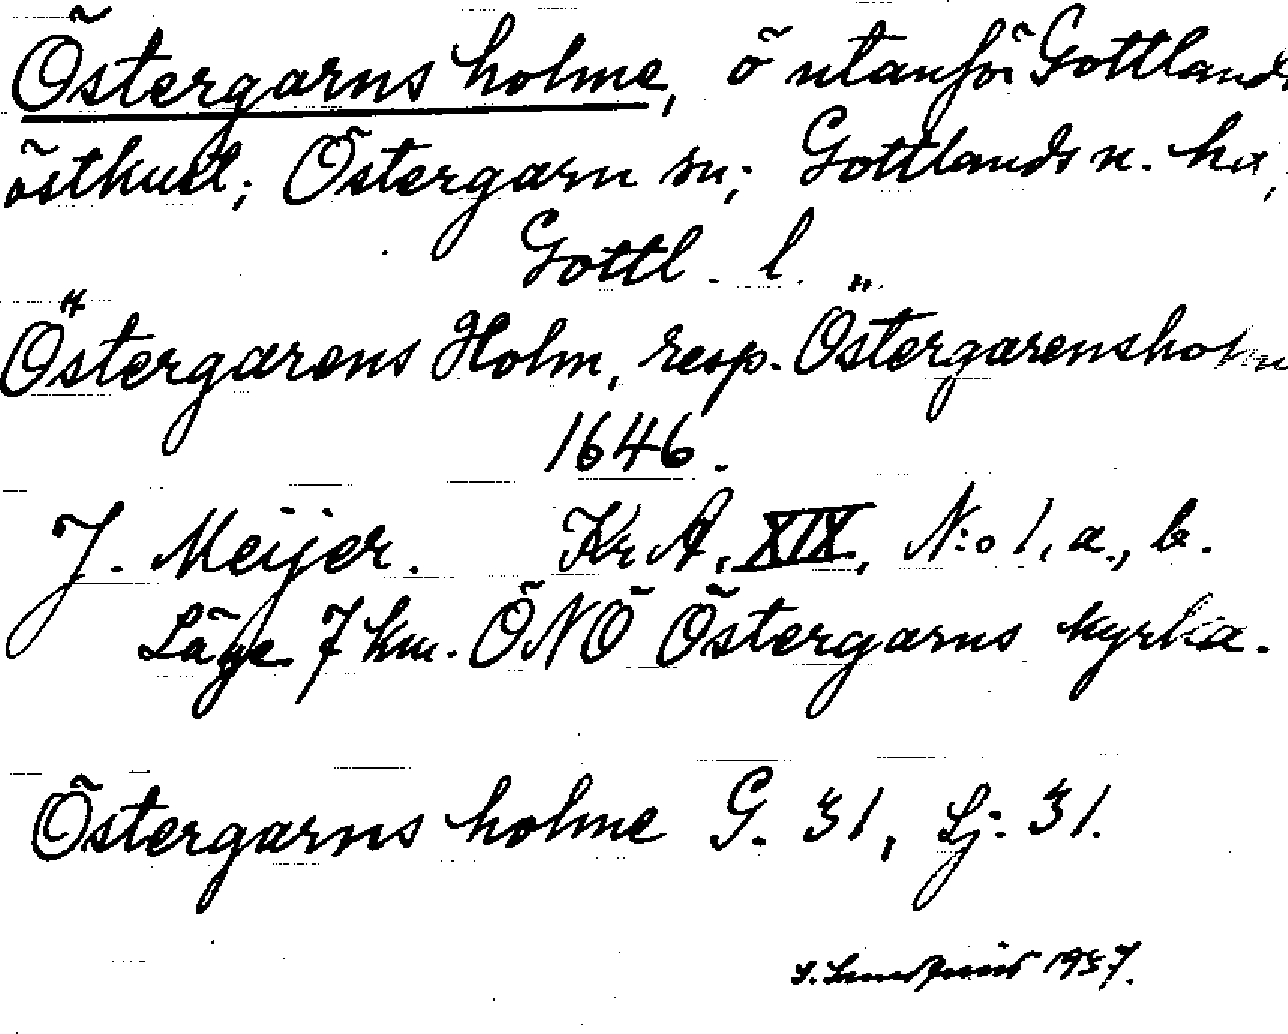 Östergarns holme, ö utanför Gottlands
östkust; Östergarn sn; Gottlands n. hd,
Gottl. l.
Östergarens Holm, resp. Östergarensholm
1646.
J. Meijer. Kr A, XIX, N:o 1, a, b.
Läge 7 km. ÖNÖ Östergarns kyrka.
Östergarns holme G. 31, Lj. 31.
1957.